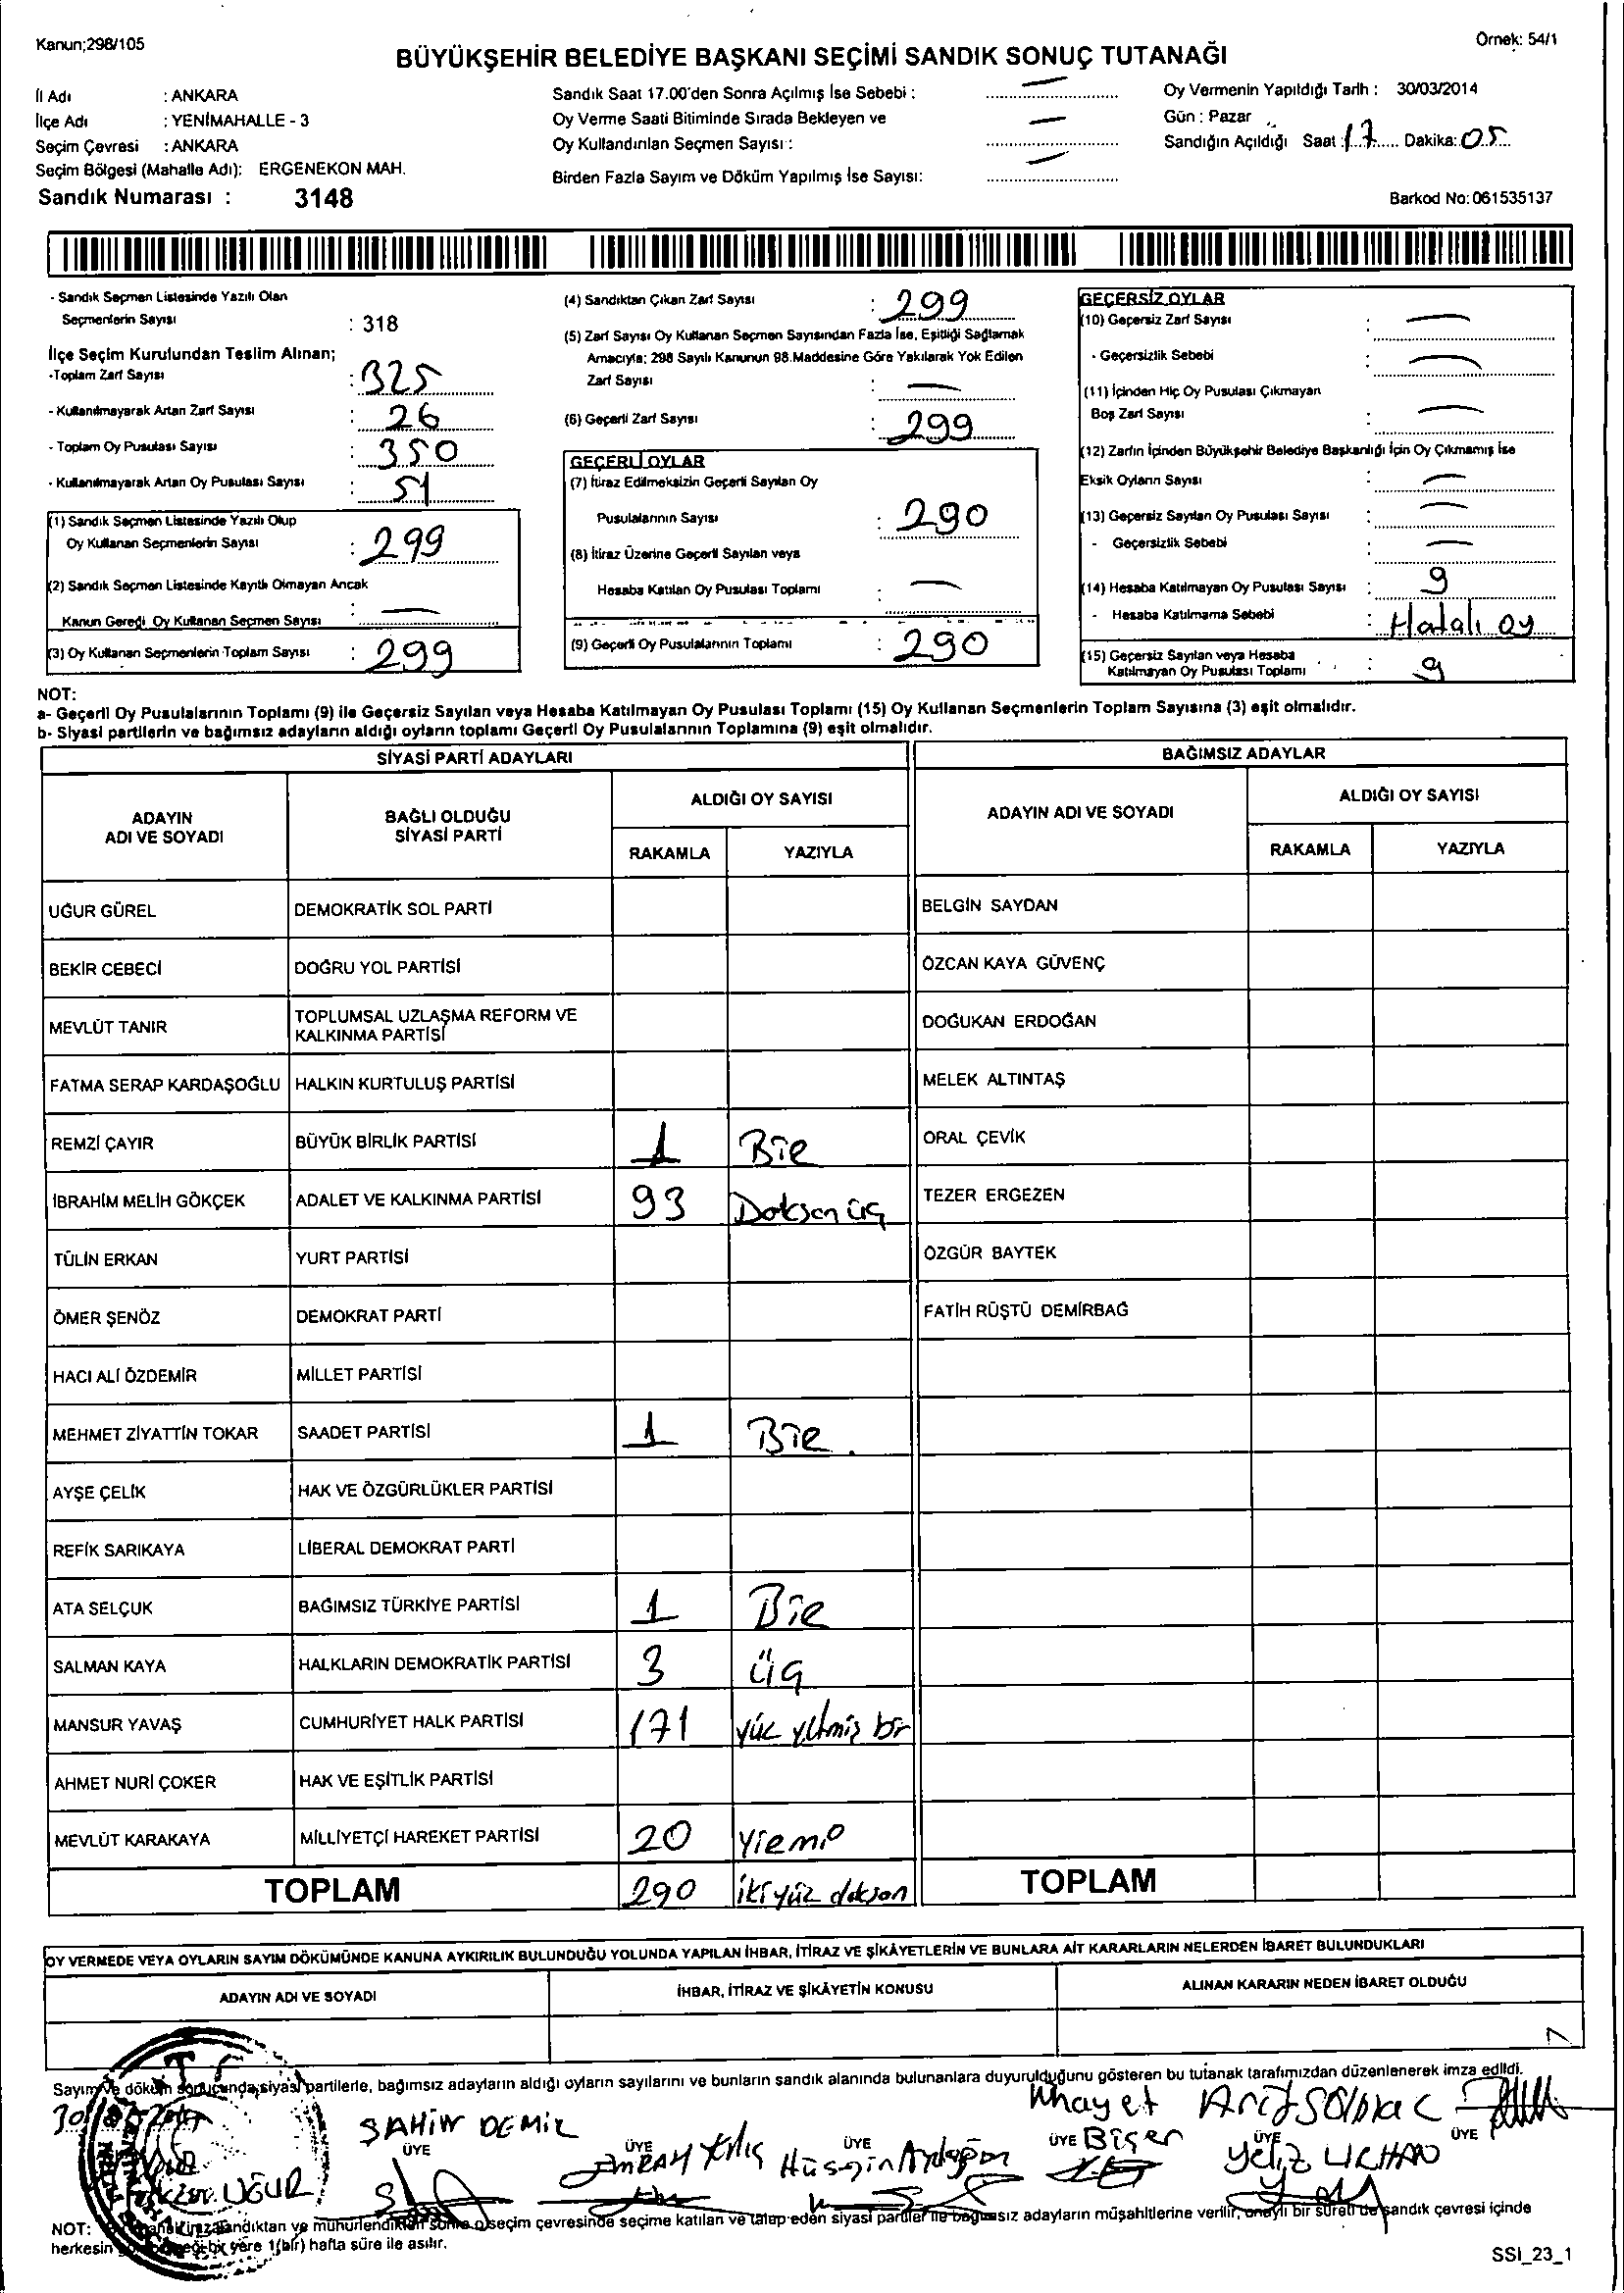 Kanun;298/105
Örnek: 54/1
BÜYÜKŞEHİR BELEDİYE BAŞKANI SEÇİMİ SANDIK SONUÇ TUTANAĞI
İl Adı : ANKARA
İlçe Adı : YENİMAHALLE - 3
Seçim Çevresi : ANKARA
Seçim Bölgesi (Mahalle Adı): ERGENEKON MAH.
Sandık Numarası : 3148
Sandık Saat 17.00'den Sonra Açılmış İse Sebebi : —
Oy Verme Saati Bitiminde Sırada Bekleyen ve
Oy Kullandırılan Seçmen Sayısı : —
Birden Fazla Sayım ve Döküm Yapılmış İse Sayısı: —
Oy Vermenin Yapıldığı Tarih : 30/03/2014
Gün : Pazar
Sandığın Açıldığı Saat : 17 Dakika: 05
Barkod No: 061535137
- Sandık Seçmen Listesinde Yazılı Olan
Seçmenlerin Sayısı : 318
İlçe Seçim Kurulundan Teslim Alınan;
-Toplam Zarf Sayısı : 325
- Kullanılmayarak Artan Zarf Sayısı : 26
- Toplam Oy Pusulası Sayısı : 350
- Kullanılmayarak Artan Oy Pusulası Sayısı : 51
(1) Sandık Seçmen Listesinde Yazılı Olup
Oy Kullanan Seçmenlerin Sayısı : 299
(2) Sandık Seçmen Listesinde Kayıtlı Olmayan Ancak
Kanun Gereği Oy Kullanan Seçmen Sayısı : —
(3) Oy Kullanan Seçmenlerin Toplam Sayısı : 299
(4) Sandıktan Çıkan Zarf Sayısı : 299
(5) Zarf Sayısı Oy Kullanan Seçmen Sayısından Fazla İse, Eşitliği Sağlamak
Amacıyla; 298 Sayılı Kanunun 98.Maddesine Göre Yakılarak Yok Edilen
Zarf Sayısı : —
(6) Geçerli Zarf Sayısı : 299
GEÇERLİ OYLAR
(7) İtiraz Edilmeksizin Geçerli Sayılan Oy
Pusulalarının Sayısı : 290
(8) İtiraz Üzerine Geçerli Sayılan veya
Hesaba Katılan Oy Pusulası Toplamı : —
(9) Geçerli Oy Pusulalarının Toplamı : 290
GEÇERSİZ OYLAR
(10) Geçersiz Zarf Sayısı : —
- Geçersizlik Sebebi : —
(11) İçinden Hiç Oy Pusulası Çıkmayan
Boş Zarf Sayısı : —
(12) Zarfın İçinden Büyükşehir Belediye Başkanlığı İçin Oy Çıkmamış İse
Eksik Oyların Sayısı : —
(13) Geçersiz Sayılan Oy Pusulası Sayısı : —
- Geçersizlik Sebebi : —
(14) Hesaba Katılmayan Oy Pusulası Sayısı : 9
- Hesaba Katılmama Sebebi : Hatalı oy
(15) Geçersiz Sayılan veya Hesaba
Katılmayan Oy Pusulası Toplamı : 9
NOT:
a- Geçerli Oy Pusulalarının Toplamı (9) ile Geçersiz Sayılan veya Hesaba Katılmayan Oy Pusulası Toplamı (15) Oy Kullanan Seçmenlerin Toplam Sayısına (3) eşit olmalıdır.
b- Siyasi partilerin ve bağımsız adayların aldığı oyların toplamı Geçerli Oy Pusulalarının Toplamına (9) eşit olmalıdır.
SİYASİ PARTİ ADAYLARI
ADAYIN
ADI VE SOYADI
BAĞLI OLDUĞU
SİYASİ PARTİ
ALDIĞI OY SAYISI
RAKAMLA YAZIYLA
UĞUR GÜREL DEMOKRATİK SOL PARTİ
BEKİR CEBECİ DOĞRU YOL PARTİSİ
MEVLÜT TANIR TOPLUMSAL UZLAŞMA REFORM VE
KALKINMA PARTİSİ
FATMA SERAP KARDAŞOĞLU HALKIN KURTULUŞ PARTİSİ
REMZİ ÇAYIR BÜYÜK BİRLİK PARTİSİ 1 Bir
İBRAHİM MELİH GÖKÇEK ADALET VE KALKINMA PARTİSİ 93 Doksan üç
TÜLİN ERKAN YURT PARTİSİ
ÖMER ŞENÖZ DEMOKRAT PARTİ
HACI ALİ ÖZDEMİR MİLLET PARTİSİ
MEHMET ZİYATTİN TOKAR SAADET PARTİSİ 1 Bir.
AYŞE ÇELİK HAK VE ÖZGÜRLÜKLER PARTİSİ
REFİK SARIKAYA LİBERAL DEMOKRAT PARTİ
ATA SELÇUK BAĞIMSIZ TÜRKİYE PARTİSİ 1 Bir
SALMAN KAYA HALKLARIN DEMOKRATİK PARTİSİ 3 üç
MANSUR YAVAŞ CUMHURİYET HALK PARTİSİ 171 yüz yetmiş bir
AHMET NURİ ÇOKER HAK VE EŞİTLİK PARTİSİ
MEVLÜT KARAKAYA MİLLİYETÇİ HAREKET PARTİSİ 20 Yirmi
TOPLAM 290 iki yüz doksan
BAĞIMSIZ ADAYLAR
ADAYIN ADI VE SOYADI
ALDIĞI OY SAYISI
RAKAMLA YAZIYLA
BELGİN SAYDAN
ÖZCAN KAYA GÜVENÇ
DOĞUKAN ERDOĞAN
MELEK ALTINTAŞ
ORAL ÇEVİK
TEZER ERGEZEN
ÖZGÜR BAYTEK
FATİH RÜŞTÜ DEMİRBAĞ
TOPLAM
OY VERMEDE VEYA OYLARIN SAYIM DÖKÜMÜNDE KANUNA AYKIRILIK BULUNDUĞU YOLUNDA YAPILAN İHBAR, İTİRAZ VE ŞİKÂYETLERİN VE BUNLARA AİT KARARLARIN NELERDEN İBARET BULUNDUKLARI
ADAYIN ADI VE SOYADI
İHBAR, İTİRAZ VE ŞİKÂYETİN KONUSU
ALINAN KARARIN NEDEN İBARET OLDUĞU
Sayım ve döküm sonucunda, siyasi partilerle, bağımsız adayların aldığı oyların sayılarını ve bunların sandık alanında bulunanlara duyurulduğunu gösteren bu tutanak tarafımızdan düzenlenerek imza edildi.
ŞAHİN DEMİR
Nihayet Biçer
Hüseyin Aydoğan
Yeliz UÇHAN
UĞUR
ÜYE ÜYE ÜYE ÜYE ÜYE ÜYE
NOT: imzalandıktan ve mühürlendikten sonra o seçim çevresinde seçime katılan ve talep eden siyasi partiler ile bağımsız adayların müşahitlerine verilir, onaylı bir sureti de sandık çevresi içinde
herkesin yere 1(bir) hafta süre ile asılır.
SSI_23_1